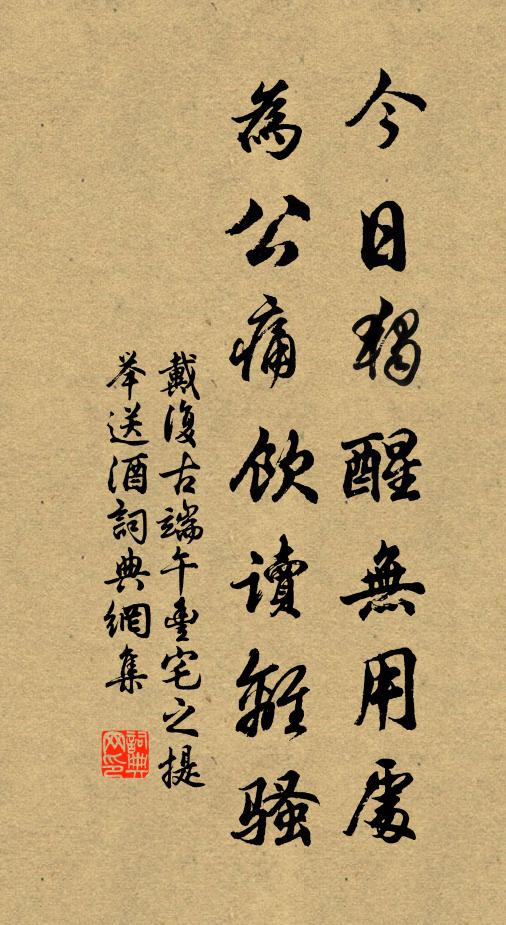 今日獨醒無用處
為公痛飲讀離騷
戴復古端午豐宅之提
舉送酒詞典網集
詞典網印